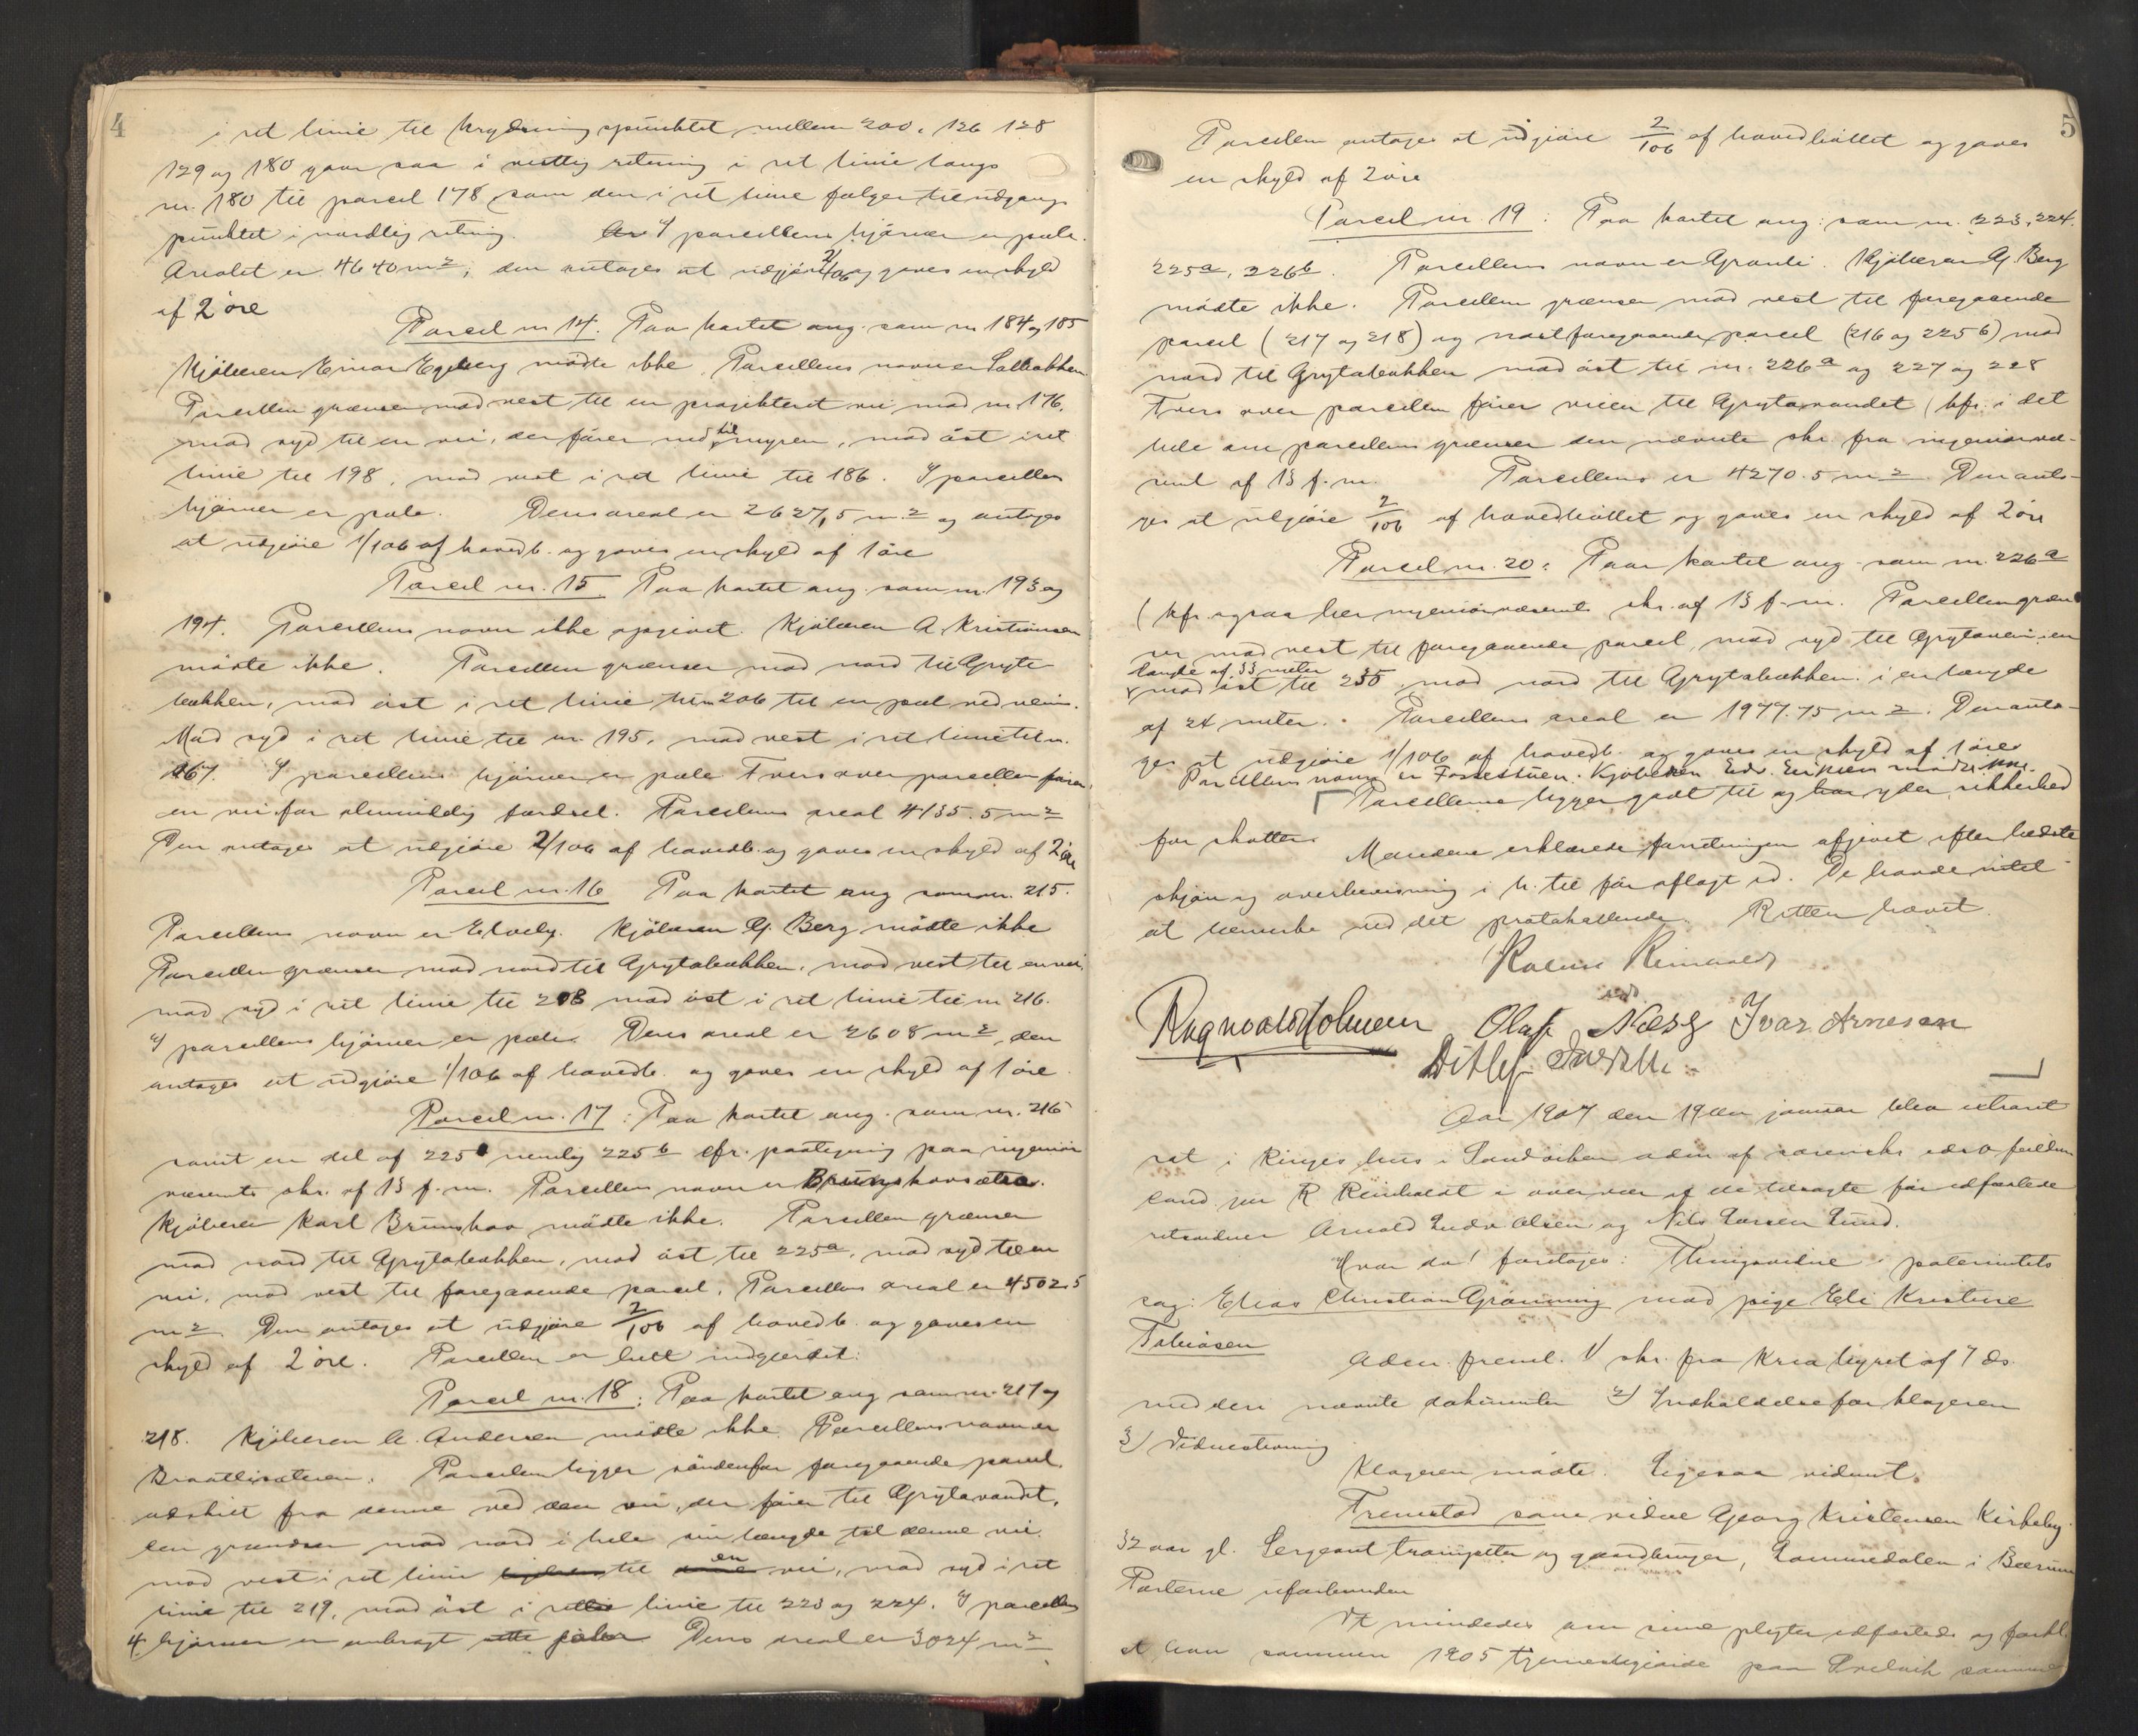 4
i ret linie til krydsningspunktet mellem 200, 126 128
129 og 180 gaar saa i vestlig retning i ret linie langs
nr. 180 til parcel 178 som den i ret linie følger til udgangs
punktet i nordlig retning. I parcellens hjørner er pæle.
Arealet er 4640 m2, den antages at udgjøre 2/106 og gaves en skyld
af 2 öre
Parcel nr 14. Paa kartet ang. som nr 184 og 185
Kjöberen Einar Egeberg mödte ikke. Parcellens navn er Solbakken
Parcellen grænser mod vest til en projekteret vei mod nr. 176,
mod syd til en vei, der fører ned til myren, mod öst i ret
linie til 198, mod vest i ret linie til 186. I parcellens
hjörner er pæle. Dens areal er 2627,5 m2 og antages
at udgjöre 1/106 af hovedb. og gaves en skyld af 1 öre
Parcel nr. 15 Paa kartet ang. som nr. 193 og
194. Parcellens navn ikke opgivet. Kjöberen A. Kristiansen
mödte ikke. Parcellen grænser mod nord til Gryte
bækken, mod öst i ret linie til nr 206 til en pæl ved veien.
Mod syd i ret linie til nr. 195, mod vest i ret linie til nr.
167. I parcellens hjörner er pæle Tvers over parcellen förer
en vei for almindelig færdsel. Parcellens areal 4135.5 m2
Den antages at udgjöre 2/106 af hovedb. og gaves en skyld af 2 öre
Parcel nr. 16 Paa kartet ang som nr. 215.
Parcellens navn er Elvely. Kjöberen G. Berg mödte ikke
Parcellen grænser mod nord til Grytabækken, mod vest til en vei,
mod syd i ret linie til 208 mod öst i ret linie til nr 216.
I parcellens hjörner er pæle. Dens areal er 2608 m2, den
antages at udgjöre 1/106 af hovedb. og gaves en skyld af 1 öre.
Parcel nr. 17: Paa kartet ang. som nr. 216
samt en del af 225 nemlig 225 b cfr. paategning paa ingeniör
væsenets skr. af 13 f. m. Parcellens navn er Brunskovsætra.
Kjöberen Karl Brunskov mödte ikke. Parcellen grænser
mod nord til Grytabækken, mod öst til 225 a, mod syd til en
vei, mod vest til foregaaende parcel. Parcellens areal er 4502.5
m2 Den antages at udgjöre 2/106 af hovedb. og gaves en
skyld af 2 öre. Parcellen er helt indgjærdet.
Parcel nr. 18: Paa kartet ang som nr. 217 og
218. Kjöberen A. Andersen mödte ikke. Parcellens navn er
Braatlisæteren. Parcellen ligger söndenfor foregaaende parcel.
adskilt fra denne ved den vei, der förer til Grytavandet,
den grændser mod nord i hele sin længde til denne vei
mod vest i ret linie til en vei, mod syd i ret
linie til 219, mod öst i ret linie til 223 og 224. I parcellens
4 hjörner er anbragt pæler Dens areal er 3024 m2
5
Parcellen antages at udgjöre 2/106 af hovedböllet og gaves
en skyld af 2 öre
Parcel nr. 19: Paa kartet ang: som nr. 223, 224.
225 a, 226 b. Parcellens navn er Granli. Kjöberen G. Berg
mödte ikke. Parcellen grænser mod vest til foregaaende
parcel (217 og 218) og næstforegaaende parcel (216 og 225 b) mod
nord til Grytabækken mod öst til nr. 226 a og 227 og 228
Tvers over parcellen förer veien til Grytavandet (kfr. i det
hele om parcellens grænser den nævnte skr. fra ingeniörvæ-
senet af 13 f. m. Parcellens er 4270.5 m2. Den anta-
ges at udgjöre 2/106 af hovedböllet og gaves en skyld af 2 öre
Parcel nr. 20: Paa kartet ang. som nr. 226 a
(kfr. ogsaa her ingeniörvæsenets skr. af 13 f. m. Parcellen græn
ser mod vest til foregaaende parcel, mod syd til Grytaveien i en
længde af 33 meter
mod öst til 235, mod nord til Grytabækken i en længde
af 24 meter. Parcellens areal er 1977.75 m2. Den anta-
ges at udgjöre 1/106 af hovedb. og gaves en skyld af 1 öre
Parcellens navn er Fossestuen. Kjöberen Edv. Eriksen mödte ikke.
Parcellerne ligger godt til og yder sikkerhed
for skatter. Mændene erklærede forretningen afgivet efter bedste
skjön og overbevisning i h. til för aflagt ed. De havde intet
at bemerke ved det protokollerede. Retten hævet.
Rolius Reinholdt
Ragnvald Holmen Olaf Næss Ivar Arnesen
Ditlef
Aar 1907 den 19 den januar blev extraret
sat i Ringes hus i Sandviken adm. af sorenskr. edsv. fuldm.
cand. jur R Reinholdt i overvær af de tilsagte för edfæstede
retsvidner Arnold Ludv. Olsen og Nils Larsen Lund.
Hvor da foretages: Thingsvidne i paternitets
sag: Elias Christian Grönning mod pige Eli Kristine
Tobiasen
Adm. freml. 1/ skr. fra Kria byret af 7 ds.
med den nævnte dokumenter 2) Indkaldelse for klageren
3) Vidnestævning
Klageren mödte. Ligesaa vidnet.
Fremstod som vidne Georg Kristensen Kirkeby
32 aar gl. Sergeant trompeter og gaardbruger, Lommedalen i Bærum
Parterne uforbunden
Vt mindedes om sine pligter edfæstedes og forkl.
at han sommeren 1905 tjenestegjorde paa Svelvik samme